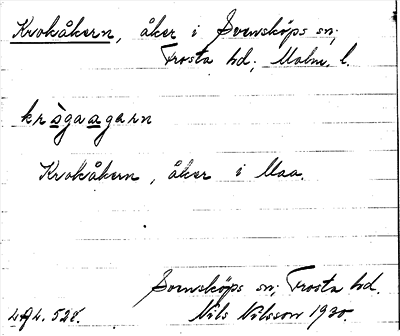 Krokåkern, åker i Svensköps sn;
Frosta hd; Malm. l.
krògaagarn
Krokåkern, åker i Maa.
Svensköps sn; Frosta hd.
Nils Nilsson 1930.